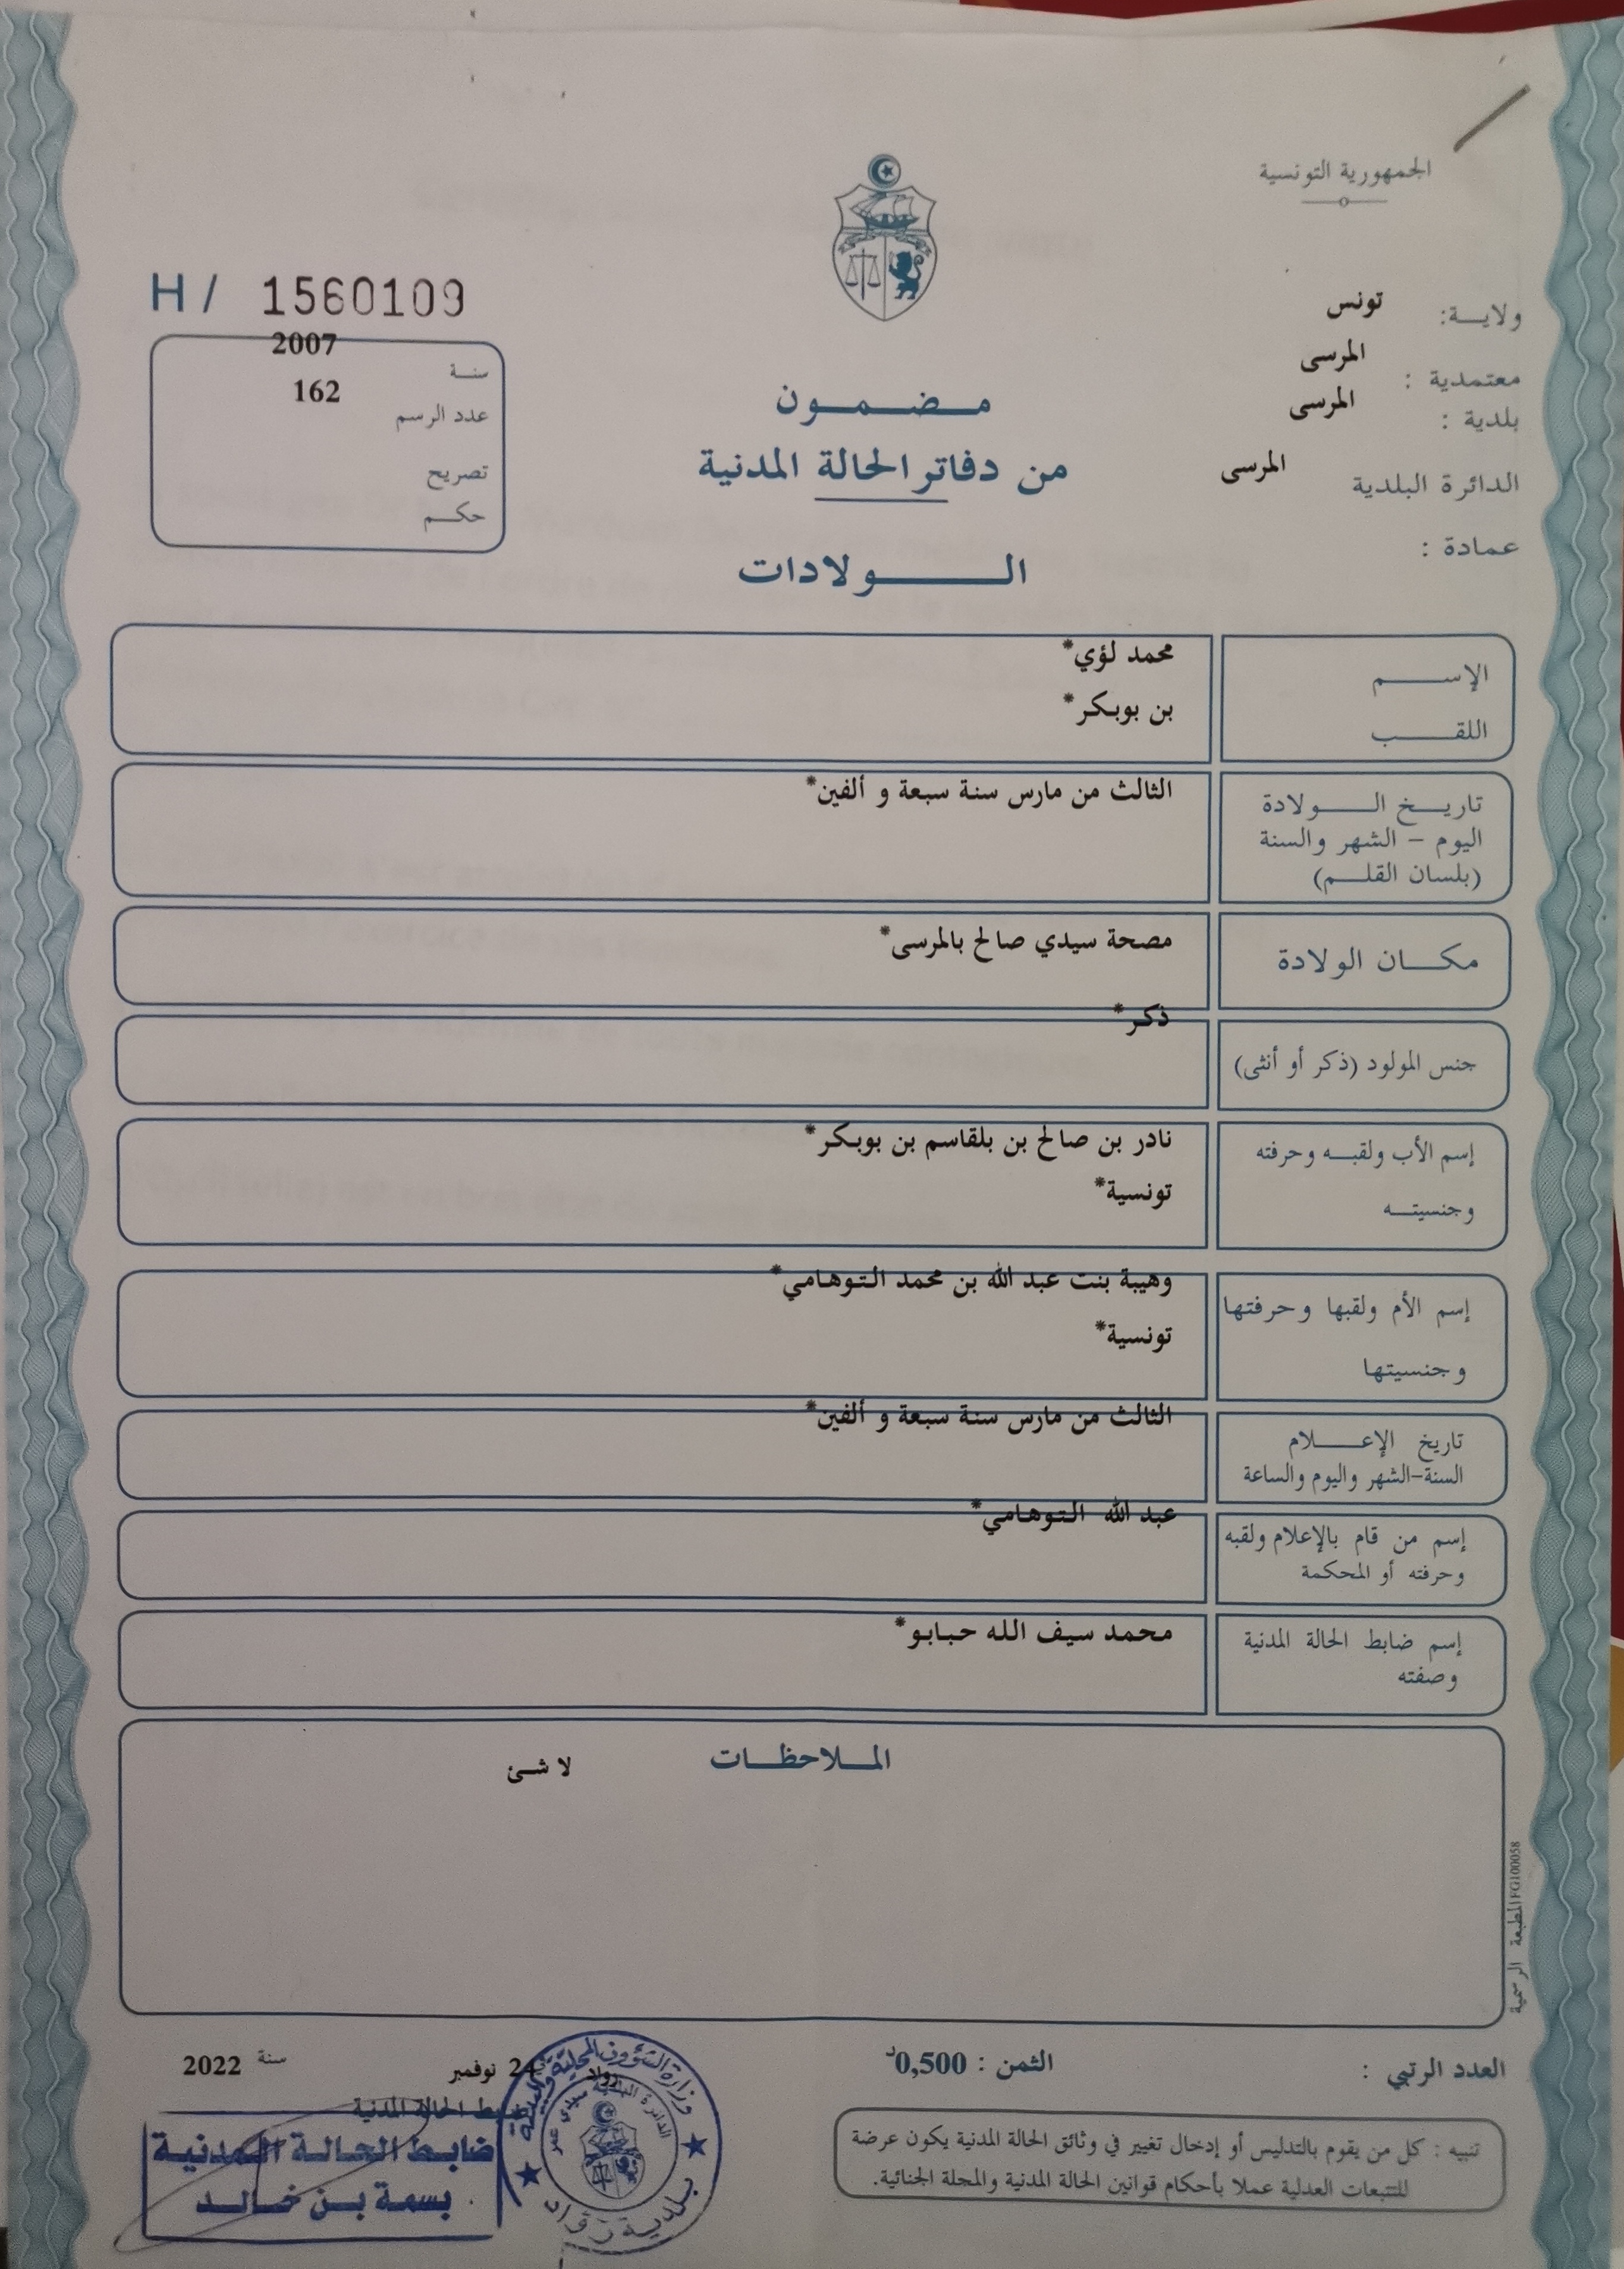 الجمهورية التونسية
ولاية: تونس
معتمدية : المرسى
بلدية : المرسى
الدائرة البلدية المرسى
عمادة :
H / 1560109
سنة 2007
عدد الرسم 162
تصريح
حكم
مضمون
من دفاتر الحالة المدنية
الولادات
الإسم محمد لؤي*
اللقب بن بوبكر*
تاريخ الولادة الثالث من مارس سنة سبعة و ألفين*
اليوم - الشهر والسنة
(بلسان القلم)
مكان الولادة مصحة سيدي صالح بالمرسى*
جنس المولود (ذكر أو أنثى) ذكر*
إسم الأب ولقبه وحرفته نادر بن صالح بن بلقاسم بن بوبكر*
وجنسيته تونسية*
إسم الأم ولقبها وحرفتها وهيبة بنت عبد الله بن محمد التوهامي*
وجنسيتها تونسية*
تاريخ الإعلام الثالث من مارس سنة سبعة و ألفين*
السنة-الشهر واليوم والساعة
إسم من قام بالإعلام ولقبه عبد الله التوهامي*
وحرفته أو المحكمة
إسم ضابط الحالة المدنية محمد سيف الله حبابو*
وصفته
الملاحظات لا شئ
المطبعة الرسمية FG100058
العدد الرتبي :
الثمن : 0,500د
رواد 24 نوفمبر سنة 2022
ضابط الحالة المدنية
ضابط الحالة المدنية
بسمة بن خالد
وزارة الشؤون المحلية والبيئة
الدائرة البلدية سيدي عمر
بلدية رواد
تنبيه : كل من يقوم بالتدليس أو إدخال تغيير في وثائق الحالة المدنية يكون عرضة
للتتبعات العدلية عملا بأحكام قوانين الحالة المدنية والمجلة الجنائية.